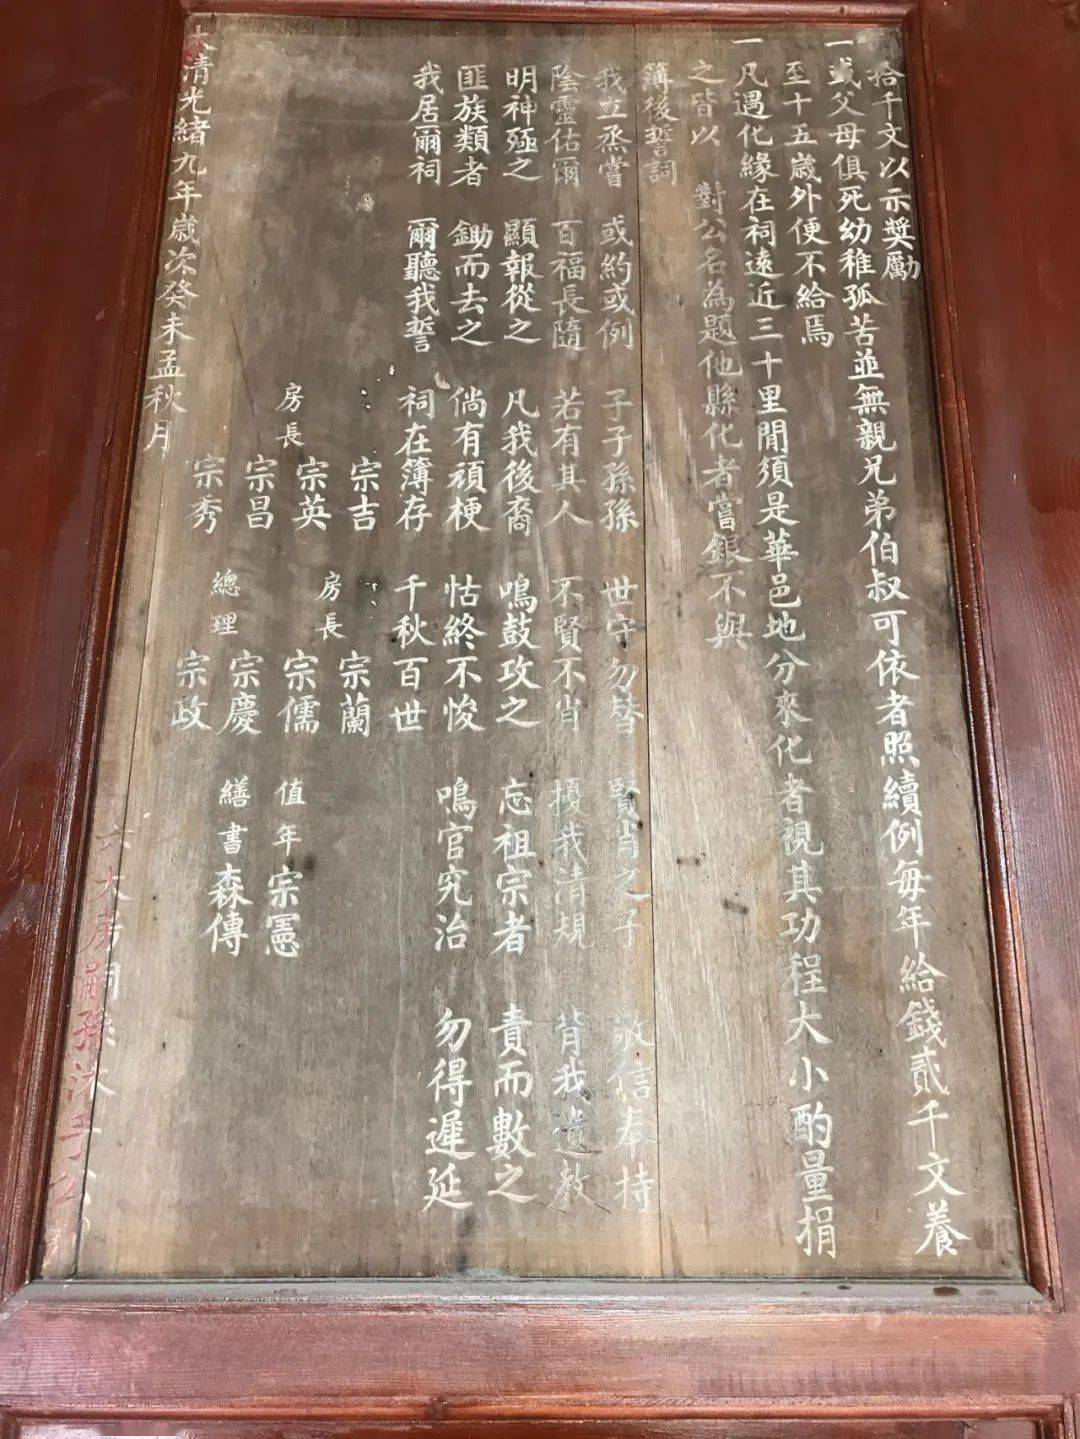 拾千文以示奬勵
一或父母俱死幼稚孤苦並無親兄弟伯叔可依者照續例每年給錢貳千文養
至十五歲外便不給焉
一凡遇化緣在祠遠近三十里間須是華邑地分來化者視其功程大小酌量捐
之皆以 對公名為題他縣化者當銀不與
簿後誓詞
我立烝嘗 或約或例 子子孫孫 世守勿替 賢肖之子 敬信奉持
陰靈佑爾 百福長隨 若有其人 不賢不肖 擾我清規 背我遺教
明神殛之 顯報從之 凡我後裔 鳴鼓攻之 忘祖宗者 責而數之
匪族類者 鋤而去之 倘有頑梗 怙終不悛 鳴官究治 勿得遲延
我居爾祠 爾聽我誓 祠在簿存 千秋百世
房長 宗吉 宗英 宗昌 宗秀
房長 宗蘭 宗儒
總理 宗慶 宗政
值年 宗憲
繕書 森傳
大清光緒九年歲次癸未孟秋月
六大房嗣孫